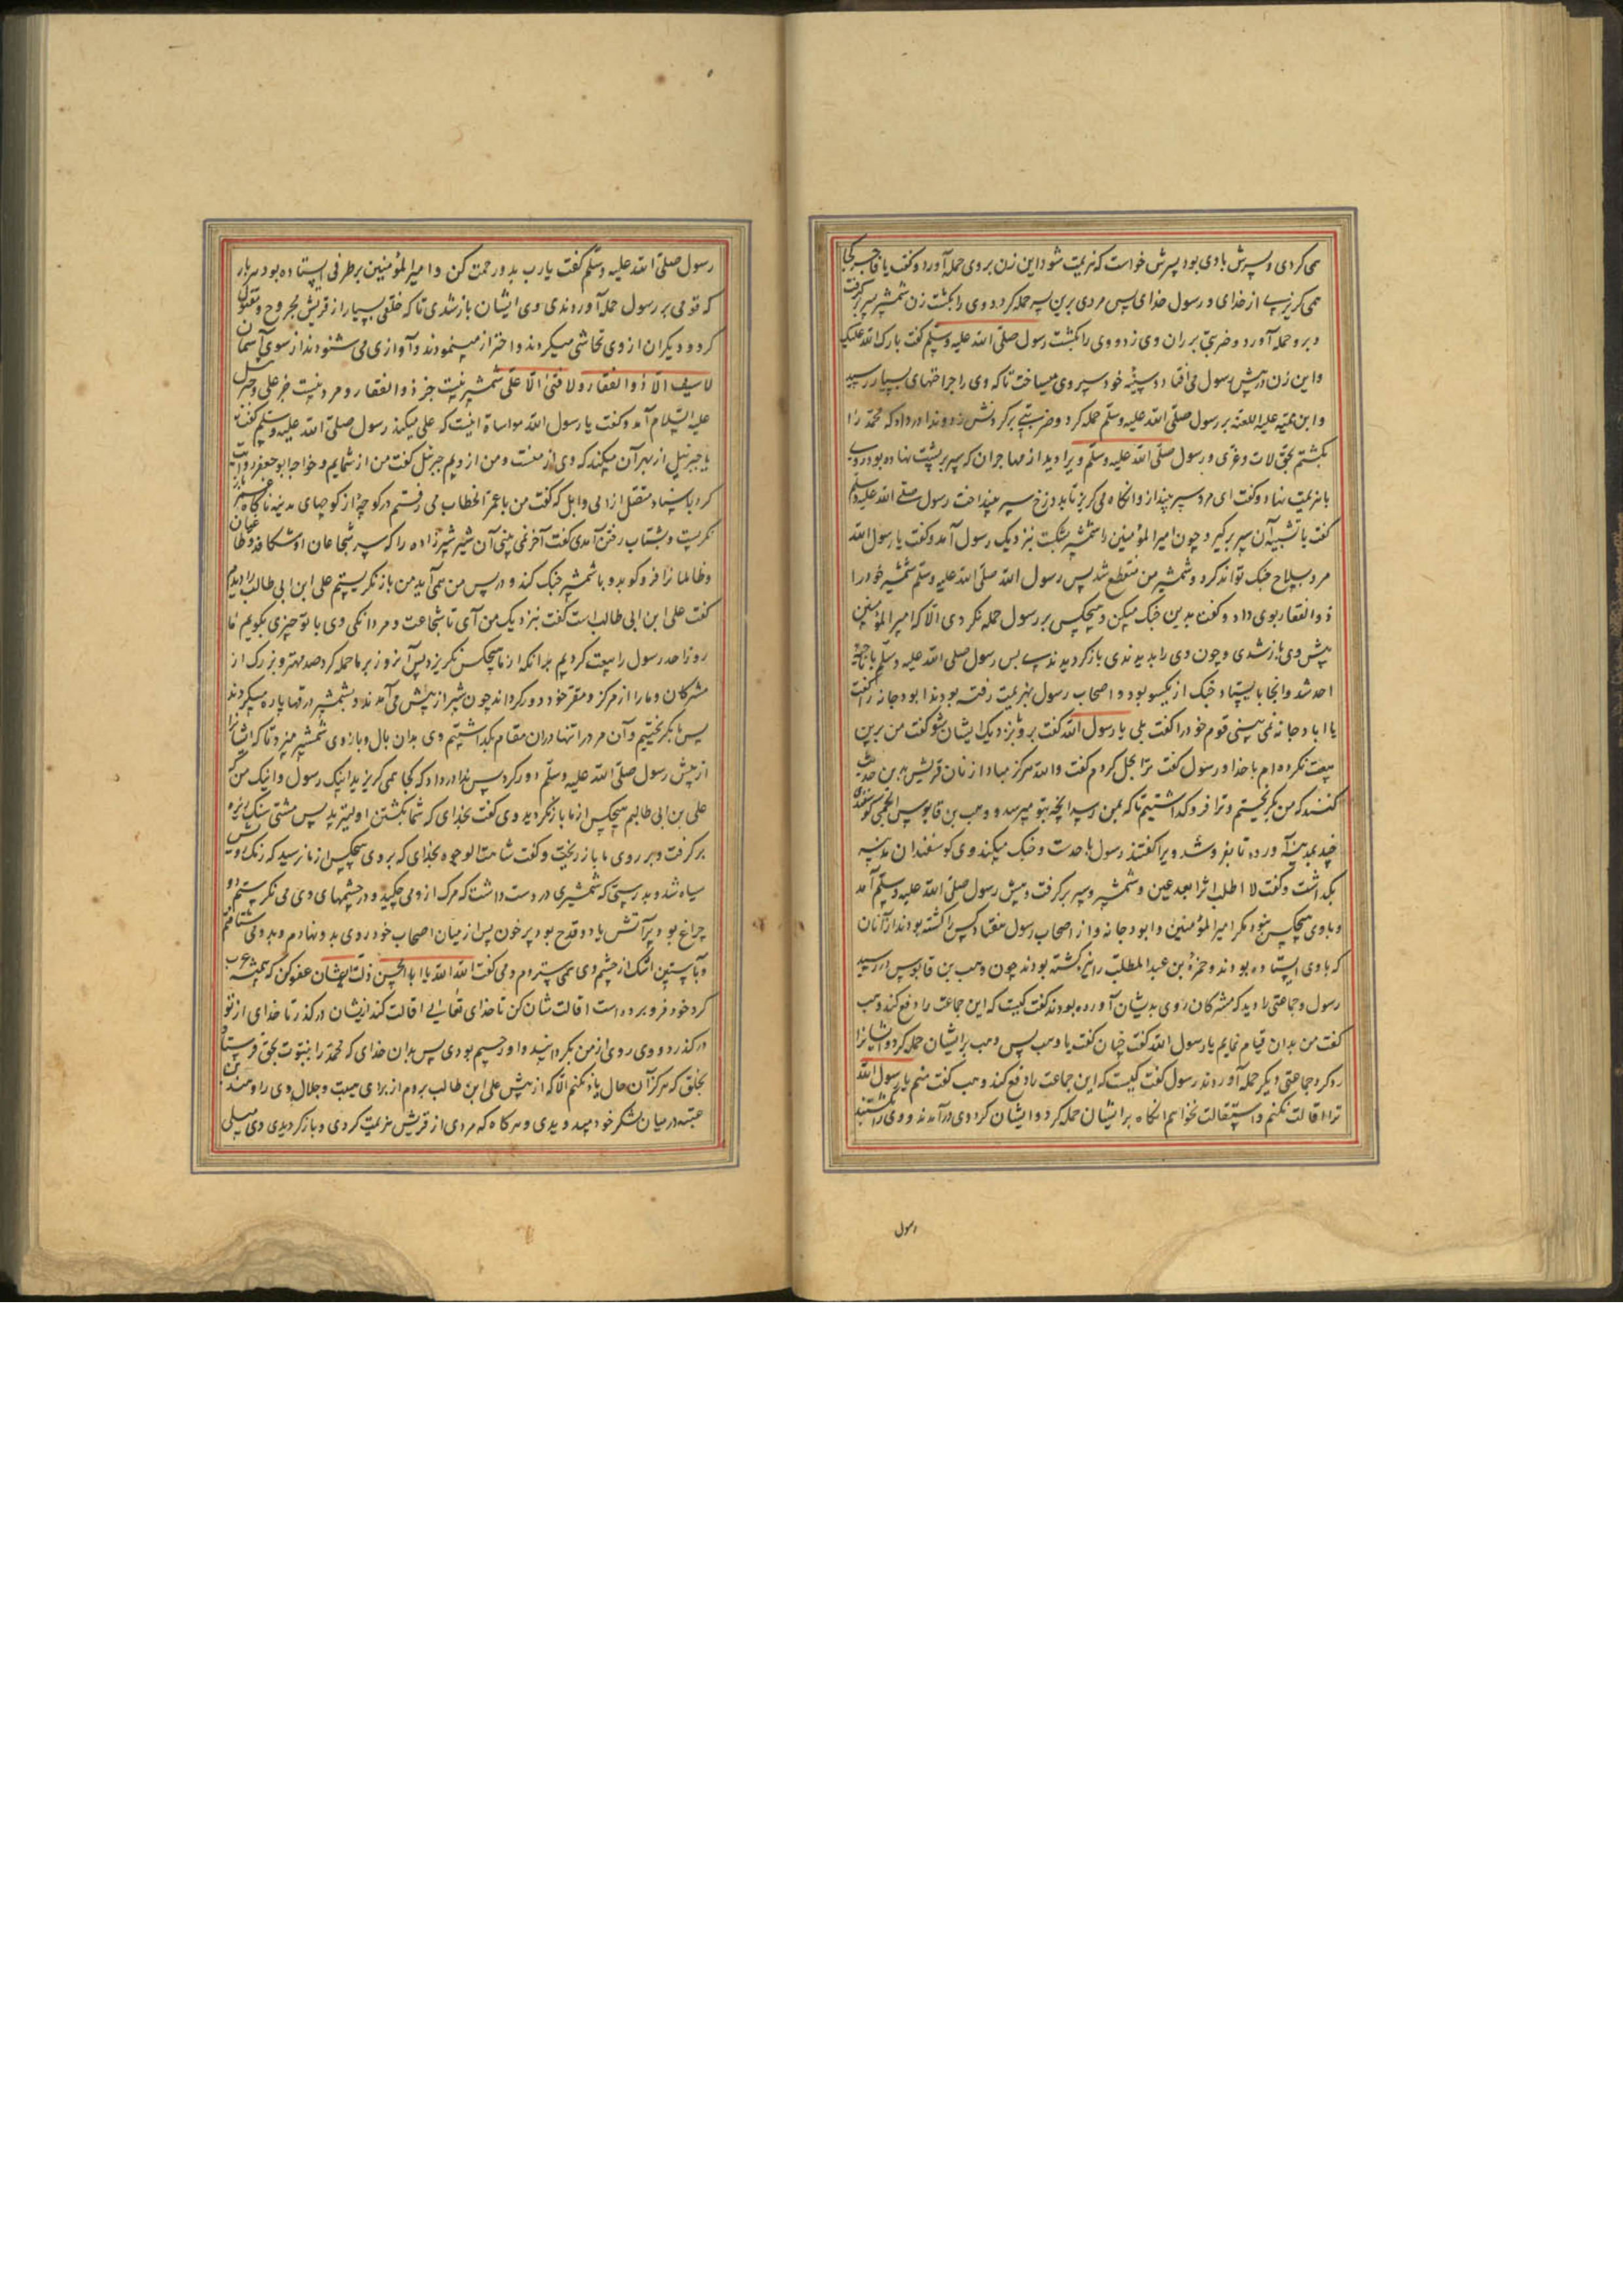 می کردی و پسرش با وی بود پسرش خواست که هزیمت شود این زن بروی حمله آورد و گفت یا کجا
می گریزی از خدای و رسول خدای پس مردی برین پسر حمله کرد و وی را بکشت زن شمشیر پسر برگرفت
و برو حمله آورد و ضربتی بر ران وی زد و وی را بکشت رسول صلی الله علیه وسلم گفت بارک الله علیک
و این زن در پیش رسول می افتاد و سینه خود سپر وی میساخت تا که وی را جراحتهای بسیار رسید
و ابن قمیه علیه اللعنه بر رسول صلی الله علیه وسلم حمله کرد و ضربتی بر گردنش زد و ندا در داد که محمد را
بکشتم بحق لات و عزی و رسول صلی الله علیه وسلم ویرا دید از مهاجران که سپر بر پشت نهاده بود و روی
بهزیمت نهاده گفت ای مرد سپر بینداز و انگاه می گریز تا بدوزخ سپر بینداخت رسول صلی الله علیه وسلم
گفت یا نسیبه آن سپر برگیر و چون امیر المؤمنین را شمشیر بشکست بنزدیک رسول آمد و گفت یا رسول الله
مرد بسلاح جنک تواند کرد و شمشیر من منقطع شد پس رسول الله صلی الله علیه وسلم شمشیر خود را
ذوالفقار بوی داد و گفت بدین جنک میکن و هیچکس بر رسول حمله نکردی الا که امیر المؤمنین
پیش وی باز شدی و چون وی را بدیدندی باز گردیدند پس رسول صلی الله علیه وسلم با ناحیه
احد شد و انجا بایستاد و جنک از یکسو بود و اصحاب رسول بهزیمت رفته بودند ابو دجانه را گفت
یا ابا دجانه نمی بینی قوم خود را گفت بلی یا رسول الله گفت برو بنزدیک ایشان شو گفت من برین
بیعت نکرده ام با خدا و رسول گفت ترا بحل کردم گفت والله هرگز مبادا زنان قریش این حدیث
کنند که من بگریختم و ترا فرو گذاشتم تا که بمن رسد انچه بتو میرسد و وهب بن قابوس گوسفندی
چند بمدینه آورده تا بفروشد ویرا گفتند رسول باحد است و جنک میکند وی گوسفندان بمدینه
بگذاشت و گفت لا اطلب اثرا بعد عین و شمشیر و سپر برگرفت و پیش رسول صلی الله علیه وسلم آمد
و با وی هیچکس نبود مگر امیر المؤمنین و ابو دجانه و از اصحاب رسول هفتاد کس را کشته بودند از آنان
که با وی ایستاده بودند و حمزة بن عبد المطلب را نیز کشته بودند چون وهب بن قابوس در رسید
رسول و جماعتی را دید که مشرکان روی بدیشان آورده بودند گفت کیست که این جماعت را دفع کند وهب
گفت من بدان قیام نمایم یا رسول الله گفت چنان کن یا وهب پس وهب بر ایشان حمله کرد و ایشان را
رد کرد جماعتی دیگر حمله آوردند رسول گفت کیست که این جماعت را دفع کند وهب گفت منم یا رسول الله
ترا اقالت نکنم و استقالت نخواهم انگاه بر ایشان حمله کرد و ایشان گرد وی در آمدند و وی را بکشتند
رسول
رسول صلی الله علیه وسلم گفت یا رب بدو رحمت کن و امیر المؤمنین بر طرفی ایستاده بود هر بار
که قومی بر رسول حمله آوردندی وی ایشان باز شدی تا که خلقی بسیار از قریش مجروح و مقتول
کرد و دیگران از وی تحاشی میکردند و احتراز مینمودند و آوازی می شنودند از سوی آسمان
لا سیف الا ذو الفقار و لا فتی الا علی شمشیر نیست جز ذو الفقار و مرد نیست جز علی و جبرئیل
علیه السلام آمد و گفت یا رسول الله مواساة اینست که علی میکند رسول صلی الله علیه وسلم گفت
یا جبرئیل از بهر آن میکند که وی از منست و من از ویم جبرئیل گفت من از شمایم و خواجه ابو جعفر روایت
کرد باسناد متصل از ابی وایل که گفت من با عمر الخطاب می رفتم در کوچه از کوچهای مدینه ناگاه باز
نگریست و بشتاب رفتن آمد گفت آخر نمی بینی آن شیر شیرزاده را که سپر شجاعان او شکافد و طاغیان
و ظالمانرا فرو کوبد و با شمشیر جنک کند و در پس من همی آید من باز نگریستم علی ابن ابی طالب را دیدم
گفت علی ابن ابی طالب است گفت بنزدیک من آی تا شجاعت و مردانگی وی با تو چیزی بگویم ما
روز احد رسول را بیعت کردیم بدانکه از ما هیچکس نگریزد پس آنروز بر ما حمله کرد صد مهتر و بزرک از
مشرکان و ما را از مرکز و مقر خود دور کردند چون شیر از پیش می آمدند و بشمشیر فرقها پاره میکردند
پس ما بگریختیم و آن مرد را تنها دران مقام بگذاشتیم وی بدان بال و بازوی شمشیر میزد تا که ایشانرا
از پیش رسول صلی الله علیه وسلم دور کرد پس ندا در داد که کجا می گریزید اینک رسول و اینک من که
علی بن ابی طالبم هیچکس از ما باز نگردید وی گفت بخدای که شما بکشتن اولیترید پس مشتی سنک ریزه
برگرفت و بر روی ما باز ریخت و گفت شاهت الوجوه بخدای که بر وی هیچکس از ما نرسید که رنک رویش
سیاه شد و بدرستی که شمشیری در دست داشت که مرک از وی می چکید و در چشمهای وی می نگریستم دو
چراغ بود پر آتش یا دو قدح بود پر خون پس از میان اصحاب خود روی بدو نهادم و بدوی شتافتم
و بآستین اشک از چشم وی می ستردم و می گفت الله الله یا ابا الحسن زلت ایشان عفو کن که همیشه عرب
گرد خود فرو برده است اقالت شان کن تا خدای تعالی اقالت کند ازیشان درگذر تا خدای از تو
درگذرد و وی روی از من بگردانید و او رحیم بودی پس بدان خدای که محمد را بنبوت بحق فرستاد
بخلق که هرگز آن حال یاد نکنم الا که از پیش علی ابن طالب بروم از برای هیبت و جلال وی را و هند بنت
عتبه در میان لشکر خود میدویدی و هر گاه که مردی از قریش هزیمت کردی و باز گردیدی وی میلی